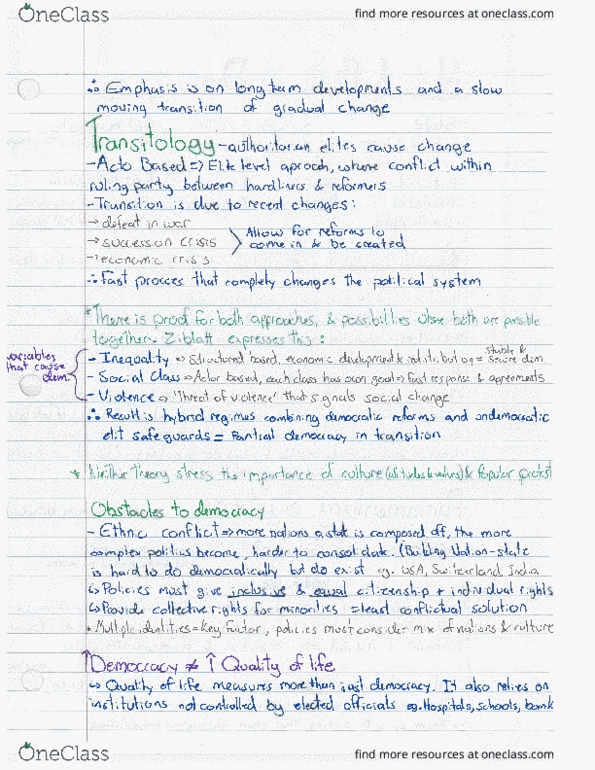 OneClass
find more resources at oneclass.com
∴ Emphasis is on long term developments and a slow
moving transition of gradual change
Transitology - authoritarian elites cause change
- Acto Based => Elite level aproach, where conflict within
ruling party between hardliners & reformers
- Transition is due to recent changes:
→ defeat in war
→ succession crisis
→ economic crisis
Allow for reforms to
come in & be created
∴ Fast procces that complety changes the political system
*There is proof for both approaches, & possibilities where both are possible
together. Ziblatt expresses this:
variables
that cause
dem.
- Inequality => Structured based, economic development & = stable & secure dem.
- Social Class => Actor based, each class has own goal => Fast response & agreements
- Violence => 'Threat of violence' that signals social change
∴ Result is hybrid regimes combining democratic reforms and undemocratic
elit safeguards = Partial democracy in transition
* Neither Theory stress the importance of culture (attitudes & values) & Popular protest
Obstacles to democracy
- Ethnic conflict => more nations a state is composed off, the more
complex politics become, harder to consolidate. (Building Nation-state
is hard to do democratically but do exist eg. USA, Switzerland India
↳ Policies must give inclusive & equal citizenship + individual rights
↳ Provide collective rights for minorities = least conflictual solution
* Multiple identities = Key factor, policies must consider mix of nations & culture
↑Democracy ≠ ↑ Quality of life
↳ Quality of life measures more than just democracy. It also relies on
institutions not controlled by elected officials eg. Hospitals, schools, bank
OneClass
find more resources at oneclass.com